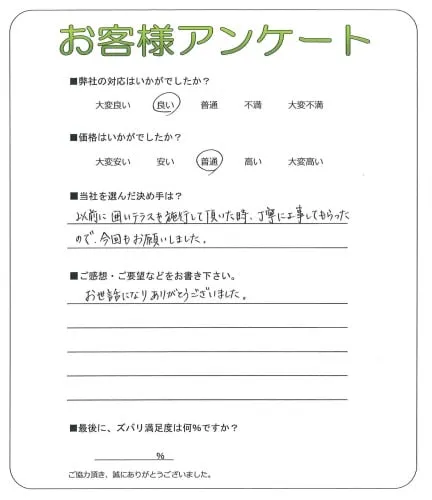 お客様アンケート
■弊社の対応はいかがでしたか？
大変良い 良い 普通 不満 大変不満
■価格はいかがでしたか？
大変安い 安い 普通 高い 大変高い
■当社を選んだ決め手は？
以前に囲いテラスを施行して頂いた時、丁寧に工事してもらった
ので、今回もお願いしました。
■ご感想・ご要望などをお書き下さい。
お世話になりありがとうございました。
■最後に、ズバリ満足度は何％ですか？
％
ご協力頂き、誠にありがとうございました。